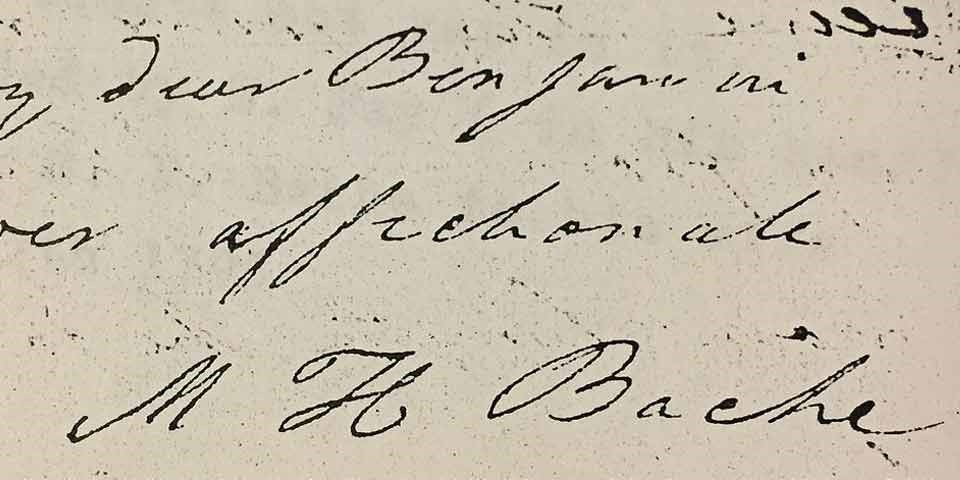 dear Benjamin
ever affectionate
M H Bache